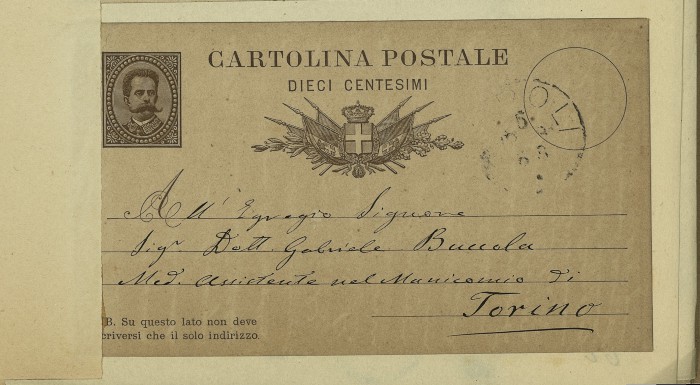 CARTOLINA POSTALE
DIECI CENTESIMI
All' Egregio Signore
Sigr Dott. Gabriele Buccola
Med. assistente nel Manicomio di
Torino
B. Su questo lato non deve
criversi che il solo indirizzo